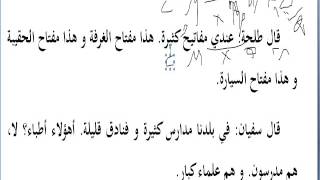 قال طلحة: عندي مفاتيح كثيرة. هذا مفتاح الغرفة و هذا مفتاح الحقيبة
و هذا مفتاح السيارة.
قال سفيان: في بلدنا مدارس كثيرة و فنادق قليلة. أهؤلاء أطباء؟ لا،
هم مدرسون. و هم علماء كبار.